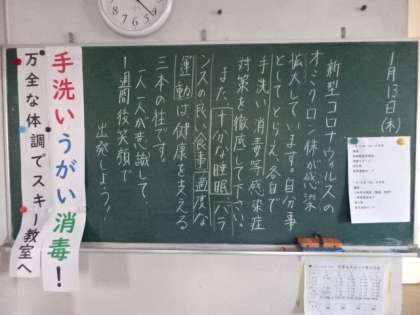 1月13日(木)
新型コロナウィルスの
オミクロン株が感染
拡大しています。自分事
としてとらえ、各自で
手洗い消毒等感染症
対策を徹底して下さい。
また、十分な睡眠、バラ
ンスの良い食事、適度な
運動は健康を支える
三本の柱です。
一人一人が意識して、
1週間後笑顔で
出発しよう!
手洗いうがい消毒!
万全な体調でスキー教室へ